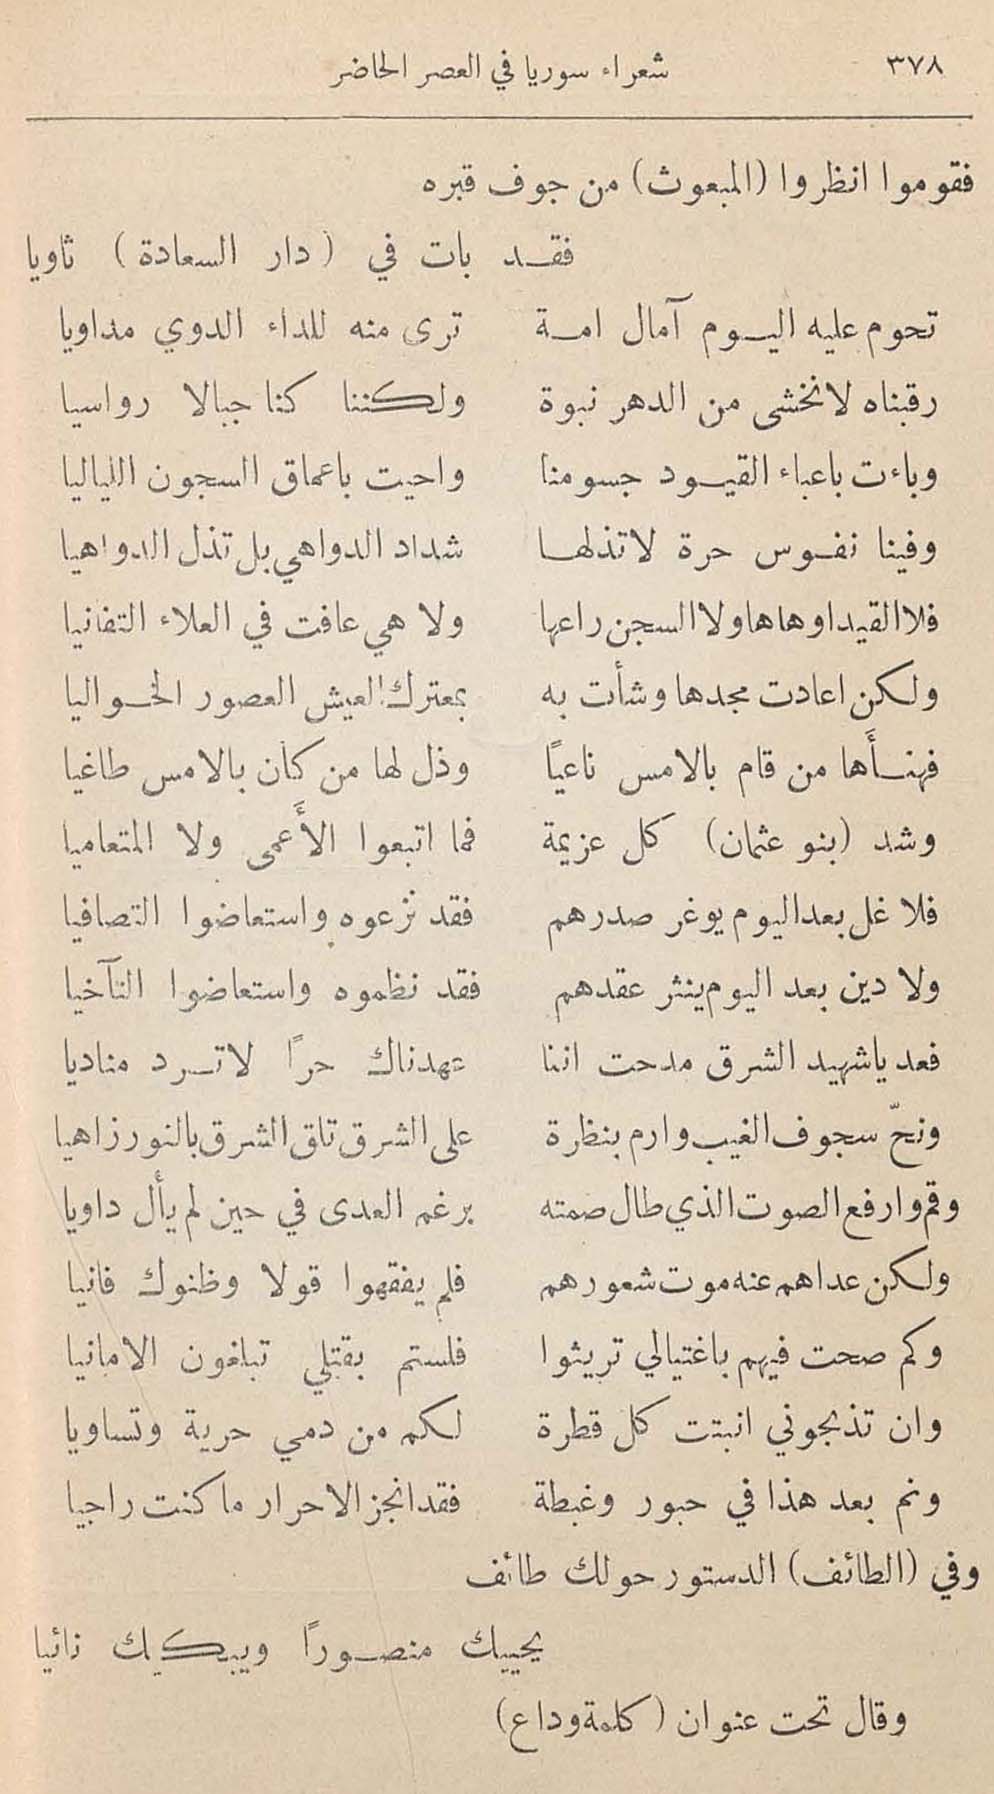 ٣٧٨ شعراء سوريا في العصر الحاضر
فقوموا انظروا (المبعوث) من جوف قبره
فقد بات في (دار السعادة) ثاويا
تحوم عليه اليوم آمال امة ترى منه للداء الدوي مداويا
رقبناه لا نخشى من الدهر نبوة ولكننا كنا جبالا رواسيا
وباءت باعباء القيود جسومنا واحيت باعماق السجون اللياليا
وفينا نفوس حرة لا تذلها شداد الدواهي بل تذل الدواهيا
فلا القيد اوهاها ولا السجن راعها ولا هي عافت في العلاء التفانيا
ولكن اعادت مجدها وشأت به بمعترك العيش العصور الخواليا
فهنأَها من قام بالامس ناعياً وذل لها من كان بالامس طاغيا
وشد (بنو عثمان) كل عزيمة فما اتبعوا الأَعمى ولا المتعاميا
فلا غل بعد اليوم يوغر صدرهم فقد نزعوه واستعاضوا التصافيا
ولا دين بعد اليوم ينثر عقدهم فقد نظموه واستعاضوا التآخيا
فعد ياشهيد الشرق مدحت اننا عهدناك حراً لا ترد مناديا
ونحّ سجوف الغيب وارم بنظرة على الشرق تلق الشرق بالنور زاهيا
وقم وارفع الصوت الذي طال صمته برغم العدى في حين لم يأل داويا
ولكن عداهم عنه موت شعورهم فلم يفقهوا قولا وظنوك فانيا
وكم صحت فيهم باغتيالي تريثوا فلستم بقتلي تبلغون الامانيا
وان تذبحوني انبتت كل قطرة لكم من دمي حرية وتساويا
ونم بعد هذا في حبور وغبطة فقد انجز الاحرار ما كنت راجيا
وفي (الطائف) الدستور حولك طائف
يحييك منصوراً ويبكيك نائيا
وقال تحت عنوان (كلمة وداع)